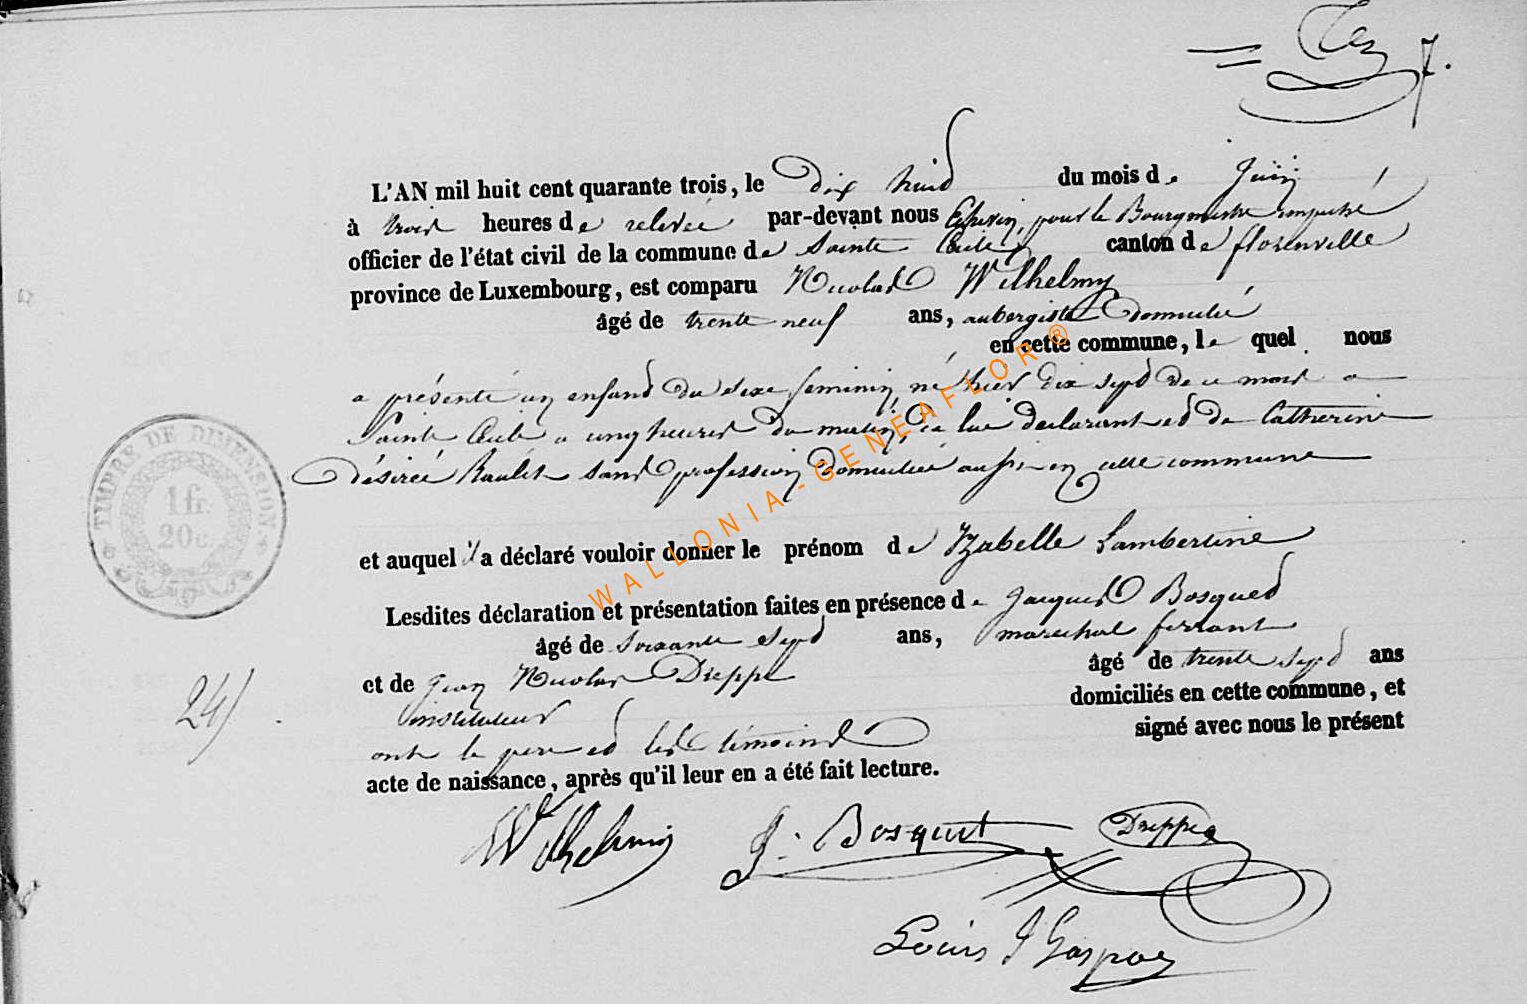 7.
L'AN mil huit cent quarante trois, le dix huid du mois de Juin
à trois heures de relevée par-devant nous Echevin, pour le Bourgmestre empeché
officier de l'état civil de la commune de Sainte Cecile canton de florenville
province de Luxembourg, est comparu Nicolas Wilhelmy
âgé de trente neuf ans, aubergiste domicilié
en cette commune, le quel nous
a présenté un enfand du sexe feminin, né hier dix sepd de ce mois a
Sainte Cecile a cinq heures du matin, de lui declarant ed de Catherine
désirée Raulet sans profession domiciliée aussi en cette commune
et auquel il a déclaré vouloir donner le prénom de Izabelle Lambertine
Lesdites déclaration et présentation faites en présence de Jacques Bosqued
âgé de soixante sepd ans, marechal ferrant
et de Jean Nicolas Dreppe âgé de trente sepd ans
instituteur domiciliés en cette commune, et
ont le pere ed les témoins signé avec nous le présent
acte de naissance, après qu'il leur en a été fait lecture.
Wilhelmy J. Bosquet Dreppe
Louis J Gaspar
24)
TIMBRE DE DIMENSION
1 fr.
20 c.
WALLONIA-GENEAFLOR®